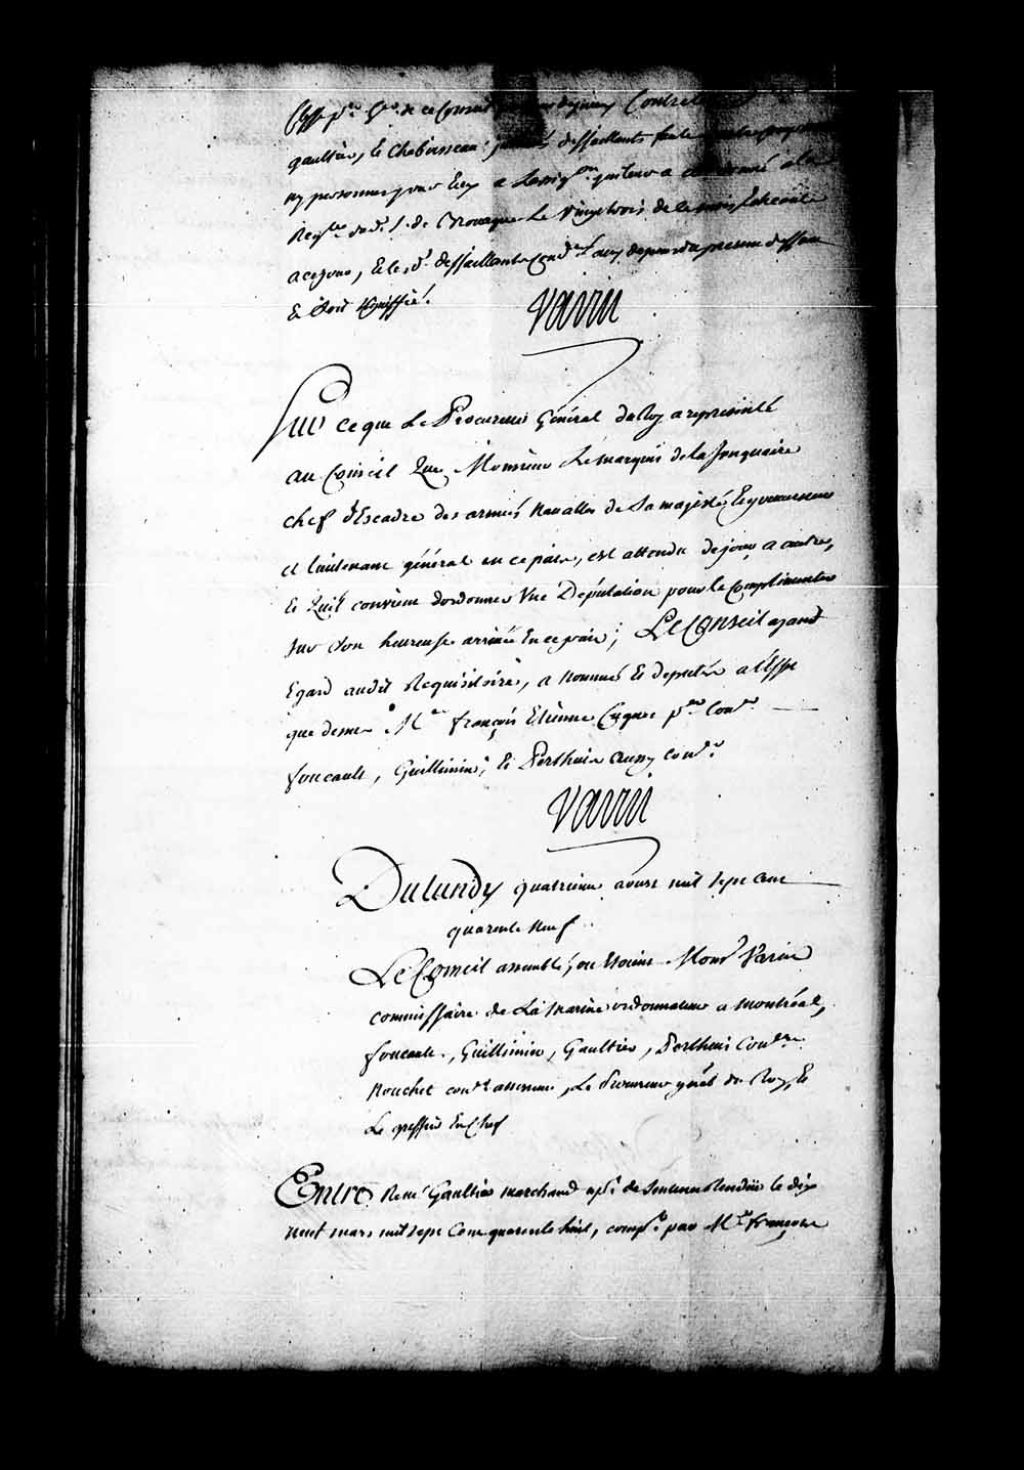 gaultier, et Chaboisseau deffaillants faute
ny personnes pour Eux a
Le vingt trois de
a ce jour, Et les d. deffaillants Cond.
Et soit signiffié.
Varin
Sur ce que Le Procureur Général du Roy a representé
au Conseil Que Monsieur Le marquis de la Jonquiere
chef d'Escadre des armées Navalles de Sa majesté, Et gouverneur
et lieutenant général en ce païs, est attendu de jour a autre,
Et Quil convient dordonner Une Députation pour le Complimenter
sur Son heureuse arrivée En ce païs; Le Conseil ayant
Egard audit Requisitoire, a nommé Et deputé a l'Effet
que dessus M.e françois Etienne Cugnet p.er Con.er
foucault, Guillimin, Et Perthuis aussy con.ers
Varin
Du Lundy quatrieme aoust mil sept cent
quarente neuf
Le Conseil assemblé, ou étoient Mons.r Varin
commissaire de La marine ordonnateur a montréal,
foucault, Guillimin, Gaultier, Perthuis Con.ers
Nouchet con.er assesseur, Le Procureur gñral du Roy, Et
Le greffier En Chef
Entre René Gaultier marchand ap.t de Sentence Rendüe le dix
neuf mars mil sept Cent quarente huit, comp.t par M.e françois